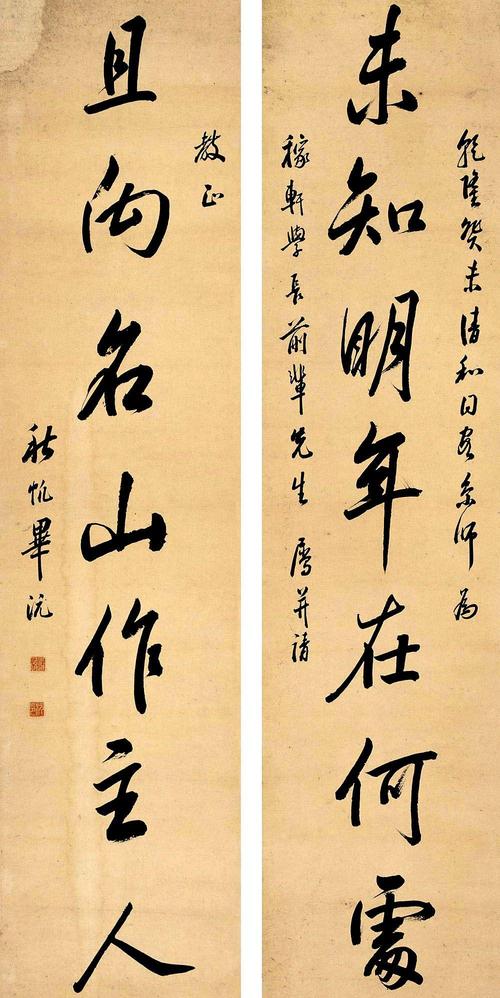 乾隆癸未清和日京師為
未知明年在何處
稼軒學長前輩先生 屬並請
教正
且向名山作主人
秋帆畢沅